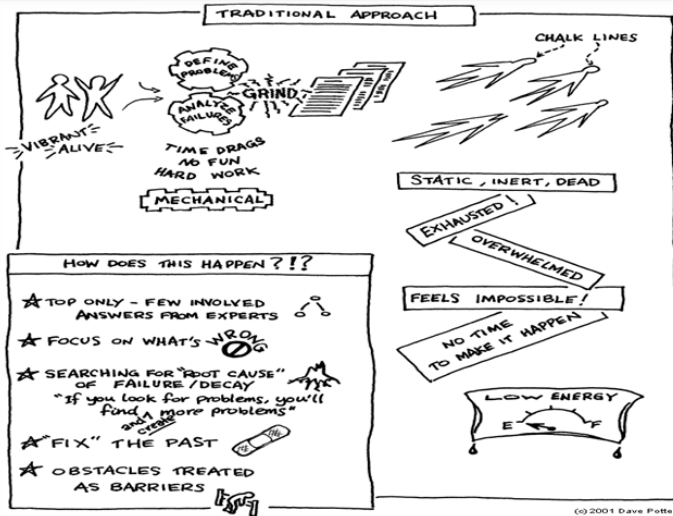 TRADITIONAL APPROACH
VIBRANT
ALIVE
DEFINE
PROBLEM
ANALYZE
FAILURES
GRIND
TIME DRAGS
NO FUN
HARD WORK
MECHANICAL
CHALK LINES
STATIC, INERT, DEAD
EXHAUSTED!
OVERWHELMED
FEELS IMPOSSIBLE!
NO TIME
TO MAKE IT HAPPEN
LOW ENERGY
E F
HOW DOES THIS HAPPEN?!?
TOP ONLY - FEW INVOLVED
ANSWERS FROM EXPERTS
FOCUS ON WHAT'S WRONG
SEARCHING FOR "ROOT CAUSE"
OF FAILURE/DECAY
"If you look for problems, you'll
find more problems"
and create
"FIX" THE PAST
OBSTACLES TREATED
AS BARRIERS
(c) 2001 Dave Potte